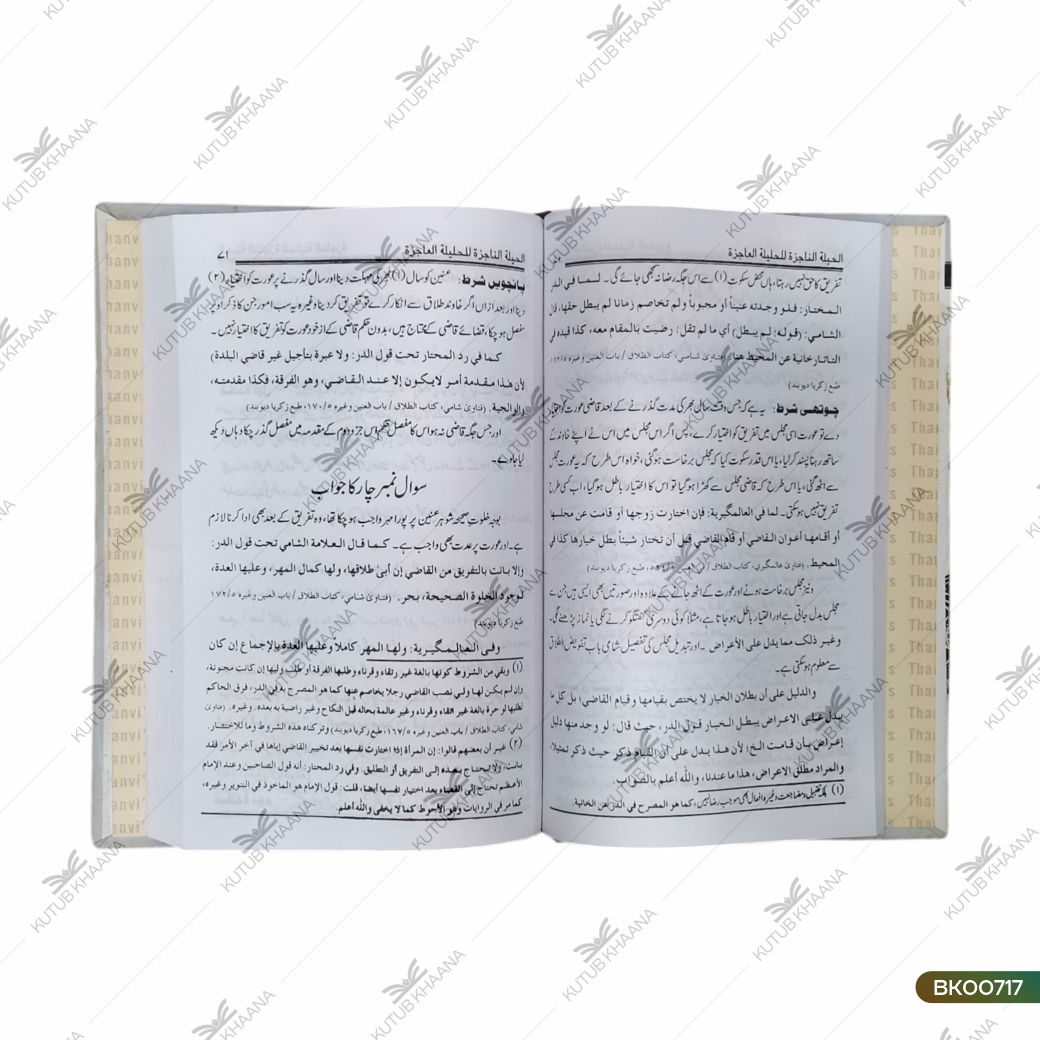 الحیلة الناجزة للحلیلة العاجزة
تفریق کا حق نہیں رہتا، ہاں محض سکوت (۱) سے اس جگہ رضا نہ سمجھی جائے گی۔ لـمـا فـي الدر
المختار: فـلـو وجـدته عنيناً أو مجبوباً ولم تخاصم زمانا لم يبطل حقها، قال
الشامي: (قـولـه: لـم يبطل) أي ما لم تقل: رضيت بالمقام معه، كذا قيده في
التاتارخانية عن المحيط هنا. (فتاویٰ شامی، کتاب الطلاق / باب العنین وغیرہ
طبع زکریا دیوبند)
چوتھی شرط: یہ ہے کہ جس وقت سال بھر کی مدت گذرنے کے بعد قاضی عورت کو اختیار
دے تو عورت اسی مجلس میں تفریق کو اختیار کرے، پس اگر اس مجلس میں اس نے اپنے خاوند کے
ساتھ رہنا پسند کر لیا، یا اس قدر سکوت کیا کہ مجلس برخاست ہوگئی، خواہ اس طرح کہ یہ عورت مجلس
سے اٹھ گئی، یا اس طرح کہ قاضی مجلس سے کھڑا ہوگیا تو اس کا اختیار باطل ہوگیا، اب کسی طرح
تفریق نہیں ہوسکتی۔ لما في العالمگيرية: فإن اختارت زوجها أو قامت عن مجلسها
أو أقامها أعوان القـاضي أو قام القاضي قبل أن تختار شيئاً بطل خيارها كذا في
المحيط. (فتاویٰ عالمگیری، کتاب الطلاق / طبع زکریا دیوبند)
ونیز مجلس برخاست ہونے اور عورت کے اٹھ جانے کے علاوہ اور صورتیں بھی ایسی ہیں جن سے
مجلس بدل جاتی ہے اور اختیار باطل ہو جاتا ہے، مثلاً کوئی دوسری گفتگو کرنے لگی یا نماز پڑھنے لگی،
وغيـر ذلـك مما يدل على الأعراض۔ اور تبدیل مجلس کی تفصیل شامی باب تفویض الطلاق
سے معلوم ہوسکتی ہے۔
والدليل على أن بطلان الخيار لا يختص بقيامها و قيام القاضي؛ بل كل ما
يـدل عـلـى الاعـراض يبطـل الـخيـار قول الدر، حيث قال: لو وجد منها دليل
إعراض بأن قـامـت الـخ؛ لأن هـذا يـدل على أن القيام ذكر حيث ذكر تمثيلا،
والمراد مطلق الاعراض، هذا ما عندنا، والله أعلم بالصواب.
(۱) بلکہ تقبیل ومضاجعت وغیرہ افعال بھی موجب رضا نہیں، كما هو المصرح في الدر عن الخانية.
الحیلة الناجزة للحلیلة العاجزة ۷۱
پانچویں شرط: عنین کو سال (۱) بھر کی مہلت دینا اور سال گذرنے پر عورت کو اختیار (۲)
دینا اور بعد ازاں اگر خاوند طلاق سے انکار کرے تو تفریق کر دینا وغیرہ یہ سب امور جن کا ذکر اوپر
مفصل ہوچکا، قضائے قاضی کے محتاج ہیں، بدون حکم قاضی کے از خود عورت کو تفریق کا اختیار نہیں۔
كـمـا فـي رد المحتار تحت قول الدر: ولا عبرة بتأجيل غير قاضي البلدة)
لأن هـذا مـقـدمة أمـر لايـكـون إلا عـنـد الـقـاضـي، وهو الفرقة، فكذا مقدمتـه،
والوالجية. (فتاویٰ شامی، کتاب الطلاق / باب العنین وغیرہ ۱۷۰/۵، طبع زکریا دیوبند)
اور جس جگہ قاضی نہ ہو اس کا مفصل حکم اس جزو دوم کے مقدمہ میں مفصل گذر چکا وہاں دیکھ
لیا جاوے۔
سوال نمبر چار کا جواب
بوجہ خلوت صحیحہ شوہر عنین پر پورا مہر واجب ہوچکا تھا، وہ تفریق کے بعد بھی ادا کرنا لازم
ہے۔ اور عورت پر عدت بھی واجب ہے۔ كـمـا قـال الـعـلامـة الشـامـي تـحـت قـول الدر:
وإلا بـانـت بالتفريق من القاضي إن أبىٰ طلاقها، ولها كمال المهر، وعليها العدة،
لوجود الخلوة الصحيحة، بحر. (فتاویٰ شامی، کتاب الطلاق / باب العنین وغیرہ ۱۷۲/۵
طبع زکریا دیوبند)
وفـي العـالـمـگـيـرية: ولهـا الـمهر كاملاً وعليها العدة بالإجماع إن كان
(۱) وبقي من الشروط كونها بالغة غير رتقاء وقرناء وطلبها الفرقة أو طلب وليها إن كانت مجنونة،
وإن لـم يـكـن لهـا ولـي نصب القاضي رجلا يخاصم عنها كما هو المصرح به في الدر، فرق الحاكم
لطلبها لو حرة بالغة غير رتقاء وقرناء وغير عالمة بحاله قبل النكاح وغير راضية به بعده. وغيره. (فتاویٰ
شامی، کتاب الطلاق / باب العنین وغیرہ ۱۶۷/۵، طبع زکریا دیوبند) وتركناه هذه الشروط وما للاختصار.
(۲) غيـر أن بعضهم قالوا: إن المرأة إذا اختارت نفسها بعد تخيير القاضي إياها في آخر الأمر فقد
بانت، ولا تحتاج بعده إلى التفريق أو التطليق. وفي رد المحتار: أنه قول الصاحبين وعند الإمام
الأعظم تحتاج إلى القضاء بعد اختيار نفسها أيضا، قلت: قول الإمام هو الماخوذ في التنوير وغيره،
كما مر في الروايات وهو الأحوط كما لا يخفى والله أعلم.
KUTUB KHAANA
BK00717